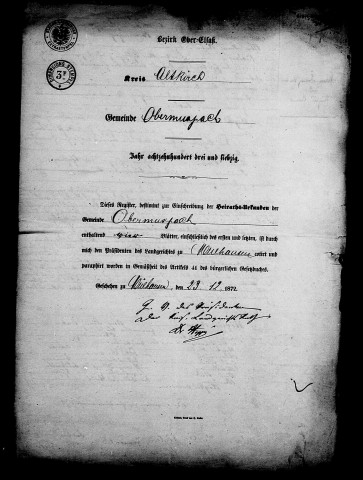 Bezirk Ober-Elsaß.
Kreis Altkirch
Gemeinde Obermuspach
Jahr achtzehnhundert drei und siebzig.
Dieses Register, bestimmt zur Einschreibung der Heiraths-Urkunden der
Gemeinde Obermuspach
enthaltend Blätter, einschließlich des ersten und letzten, ist durch
mich den Präsidenten des Landgerichtes zu Mülhausen cotirt und
paraphirt worden in Gemäßheit des Artikels 41 des bürgerlichen Gesetzbuches.
Geschehen zu Mülhausen, den 23. 12 1872.